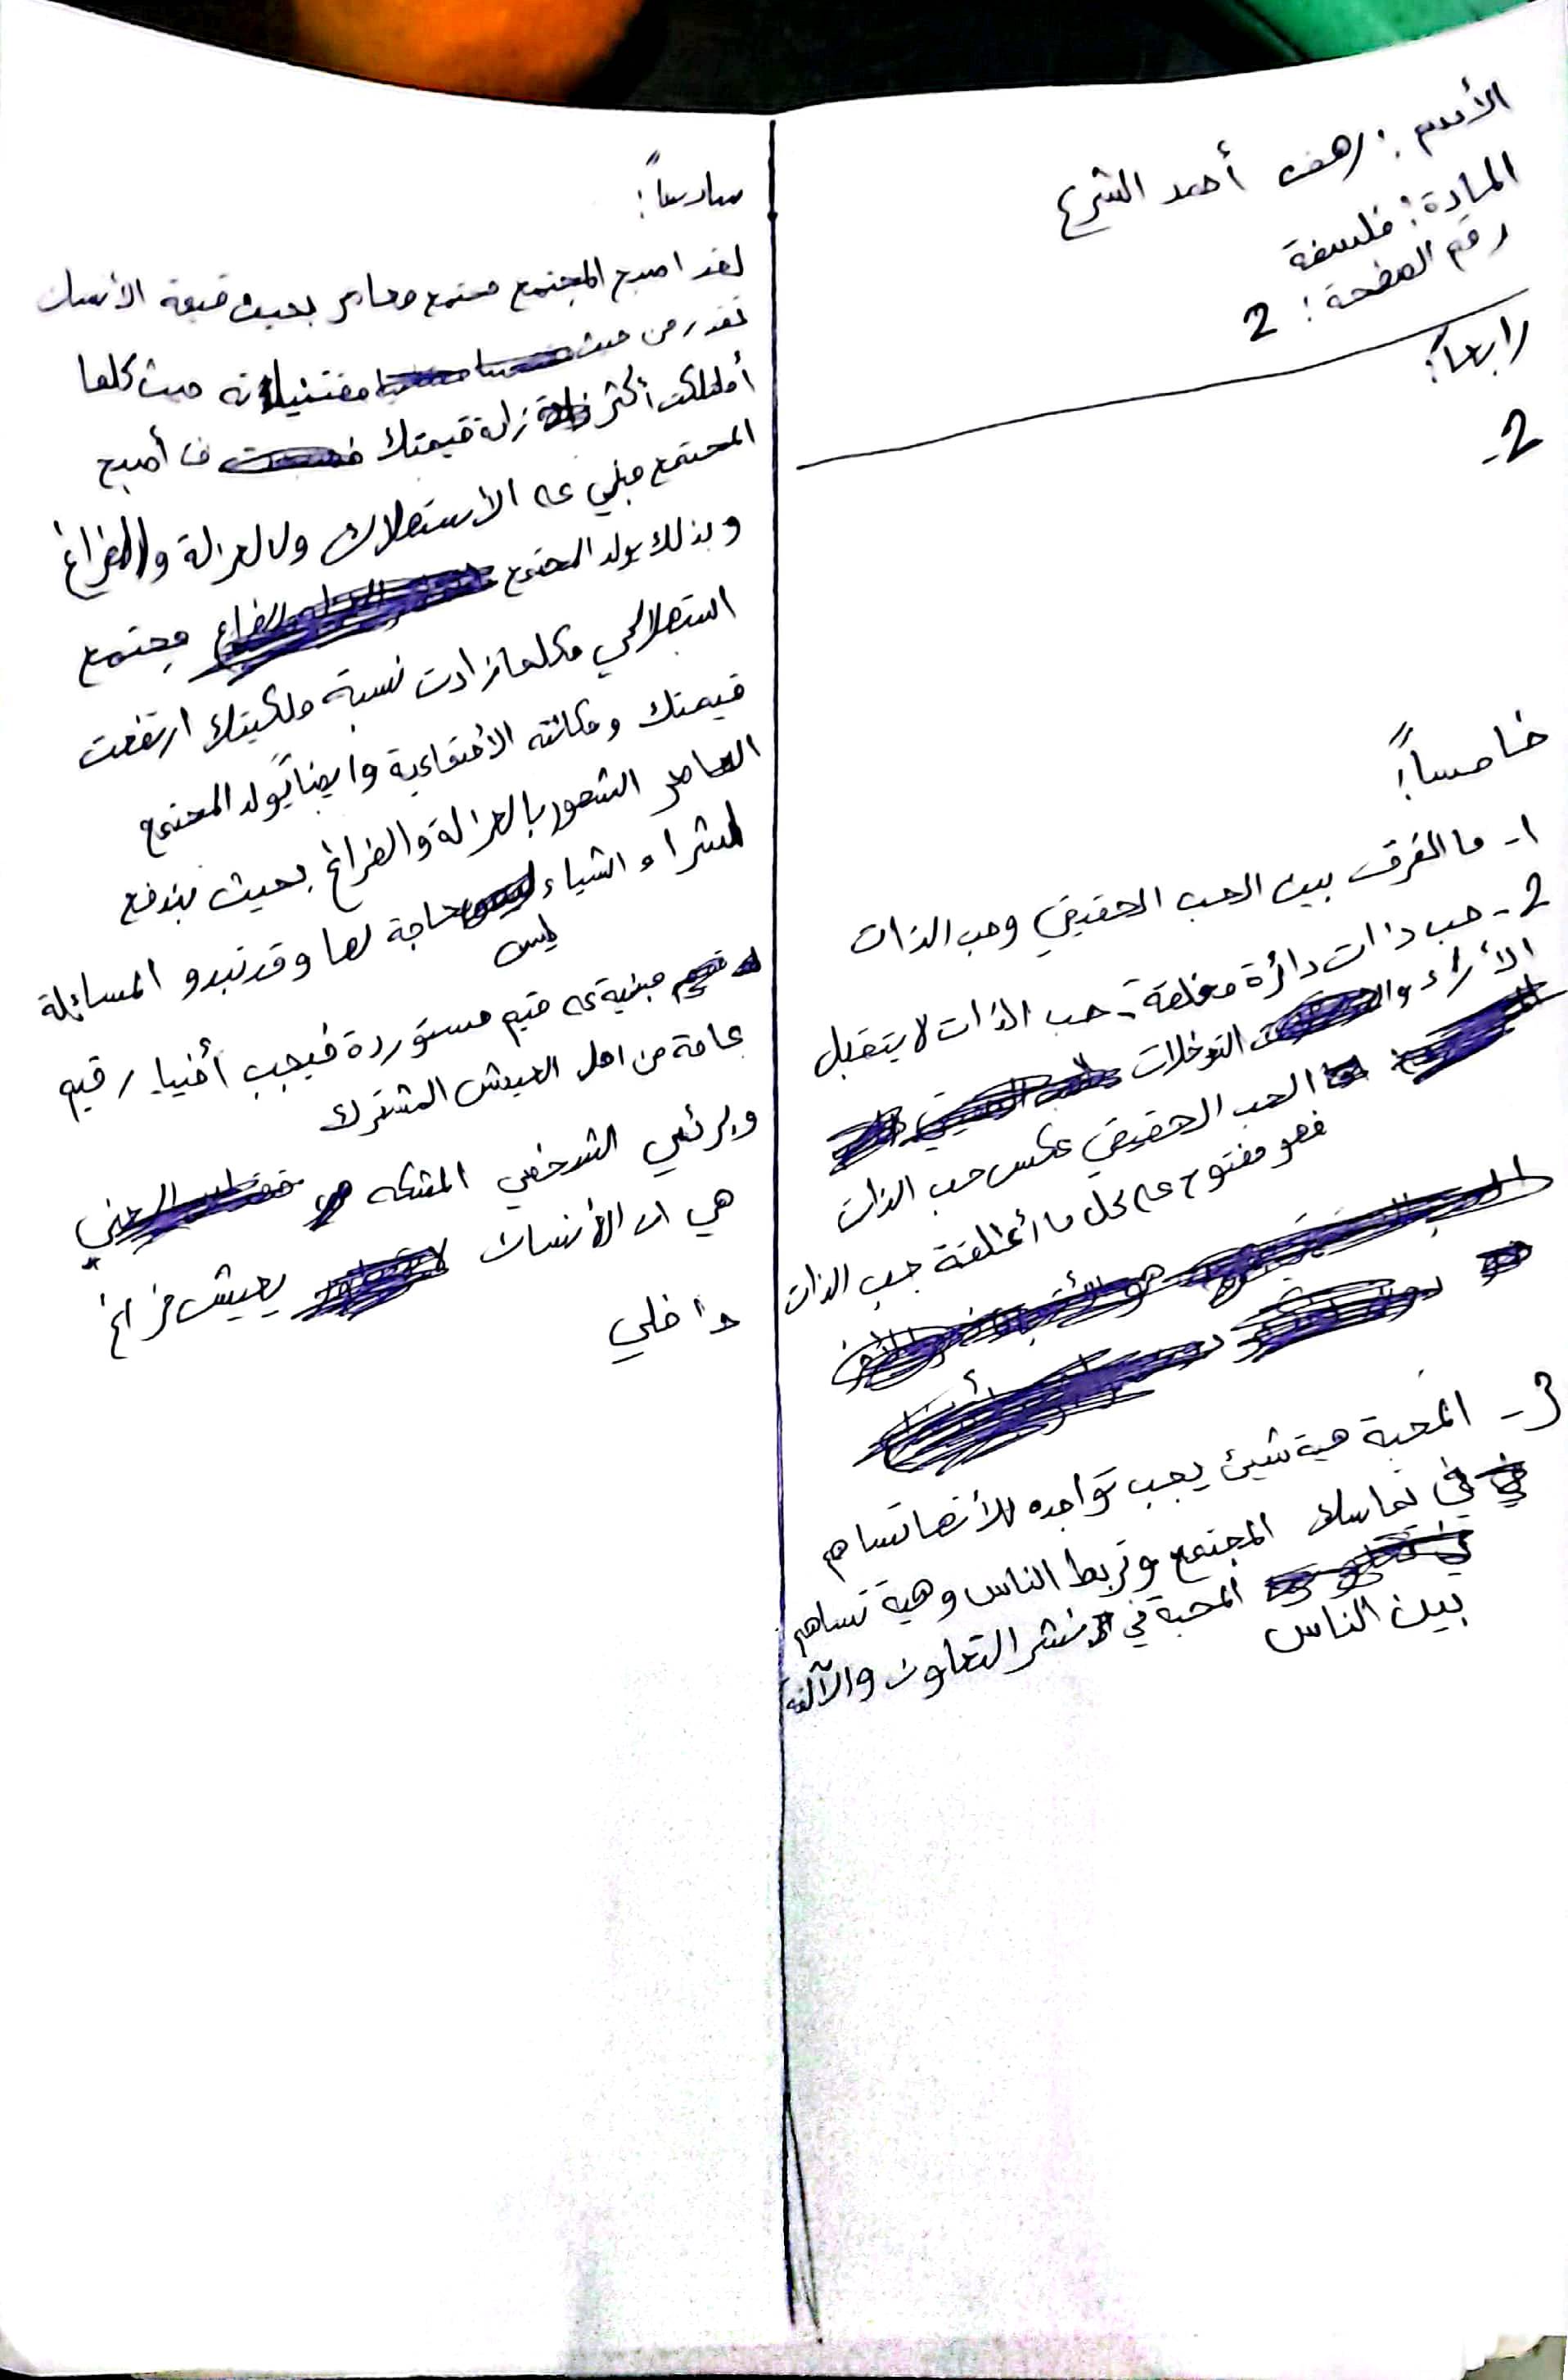 الأسم: رهف أحمد الشرع
المادة: فلسفة
رقم الصفحة: 2
رابعاً:
2-
خامساً:
1- ما الفرق بين الحب الحقيقي وحب الذات
2- حب ذات دائرة مغلقة، حب الذات لا يتقبل
الأراء و التدخلات
الحب الحقيقي عكس حب الذات
فهو مفتوح على كل ما أغلقة حب الذات
3- المحبة هية شيئ يجب تواجده للأنها تساهم
في تماسك المجتمع وتربط الناس وهية تساهم
المحبة في نشر التعاون والآلفة
بين الناس
سادساً:
لقد اصبح المجتمع مجتمع معاصر بحيث قيمة الأنسان
تقدر من حيث مقتنياته حيث كلما
أمتلكت أكثر زادة قيمتك فـ أصبح
المجتمع مبني على الأستهلاك ولد العزلة والفراغ
وبذلك يولد المجتمع مجتمع
استهلاكي فكلما زادت نسبة ملكيتك ارتفعت
قيمتك ومكانته الأجتماعية وايضاً يولد المجتمع
المعاصر الشعور بالعزلة والفراغ بحيث يندفع
لشراء اشياء ليس حاجة لها وقد تبدو المسائلة
مبنية على قيم مستوردة فيجب أختيار قيم
عامة من اجل العيش المشترك
وبرئيي الشخصي المشكلة
هي ان الأنسان يعيش فراغ
داخلي